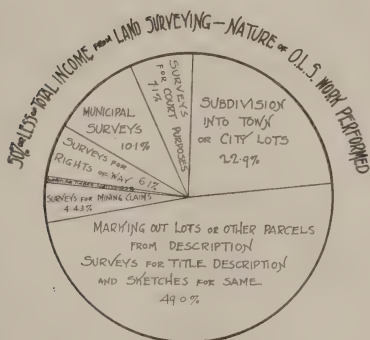 50% OR LESS OF TOTAL INCOME FROM LAND SURVEYING — NATURE OF O.L.S. WORK PERFORMED
SURVEYS
FOR COURT PURPOSES
7.1%
SUBDIVISION
INTO TOWN
OR CITY LOTS
22.9%
MUNICIPAL
SURVEYS
10.1%
SURVEYS FOR
RIGHTS OF WAY 6.1%
SURVEYS FOR MINING CLAIMS
4.43%
MARKING OUT LOTS OR OTHER PARCELS
FROM DESCRIPTION
SURVEYS FOR TITLE DESCRIPTION
AND SKETCHES FOR SAME
49.0%